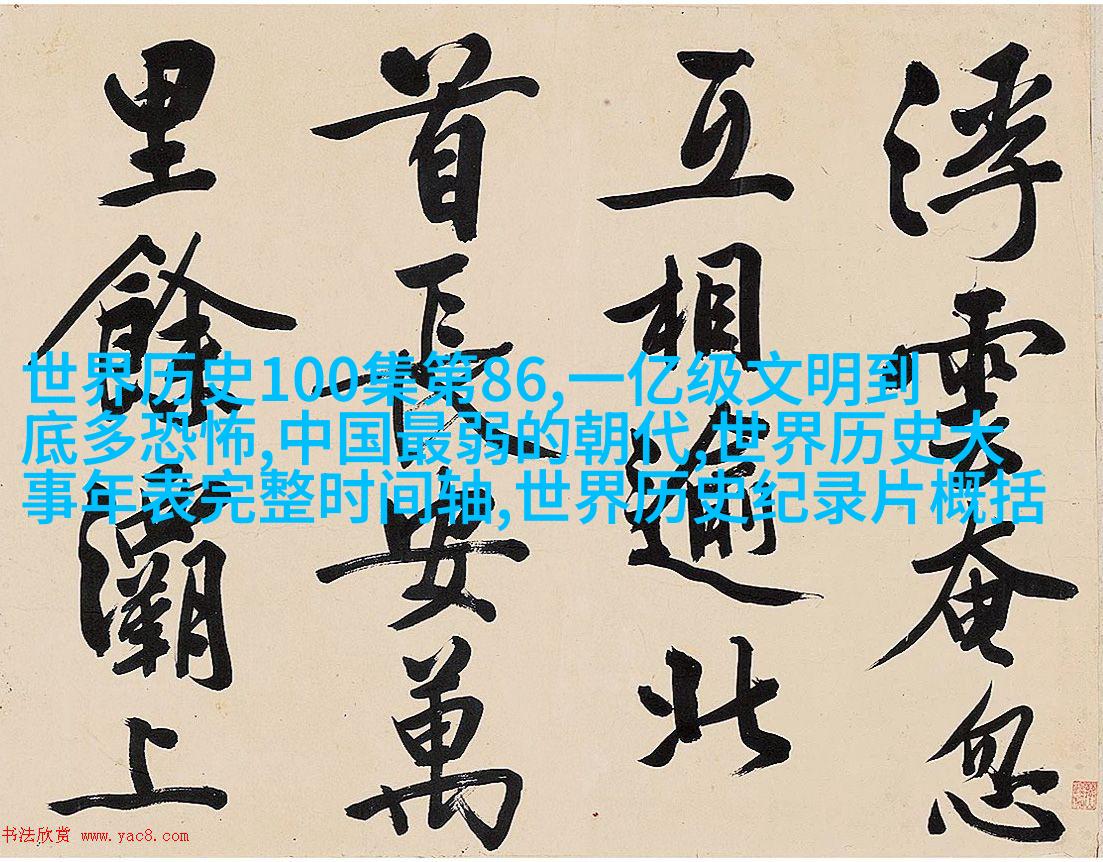 浮雲奄忽
互相逾北
首長安萬
里餘灞上
世界历史100集第86,一亿级文明到
底多恐怖,中国最弱的朝代,世界历史大
事年表完整时间轴,世界历史纪录片概括
书法欣赏 www.yac8.com